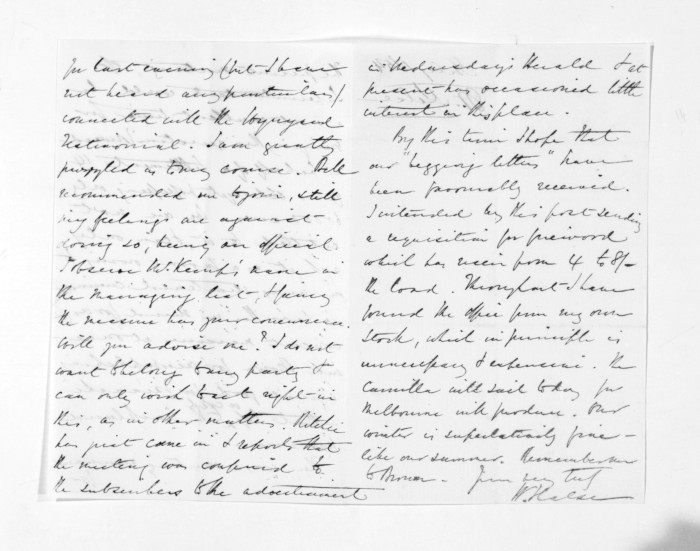 for last evening (but I have
not heard any particulars)
connected with the Wynyard
Testimonial. I am greatly
puzzled as to my course. Bell
recommended me to join, still
my feelings are against
doing so, being an official
I observe Mr. Kemp's name in
the managing list, & fancy
the measure has your concurrence.
Will you advise me? I do not
want to belong to any party &
can only wish to act right in
this, as in other matters. Ritchie
has just come in & reports that
the meeting was confined to
the subscribers to the advertisement
in Wednesday's Herald & at
present has occasioned little
interest in this place.
By this time I hope that
our "begging letters" have
been favorably received.
I intended by this post sending
a requisition for firewood
which has risen from 4 to 8/-
the load. Throughout I have
found the office from my own
stock, which in principle is
unnecessary & expensive. The
Camilla will sail today for
Melbourne with produce. Our
winter is superlatively fine -
like our summer. Remember me
to - Yours very truly
H Halse